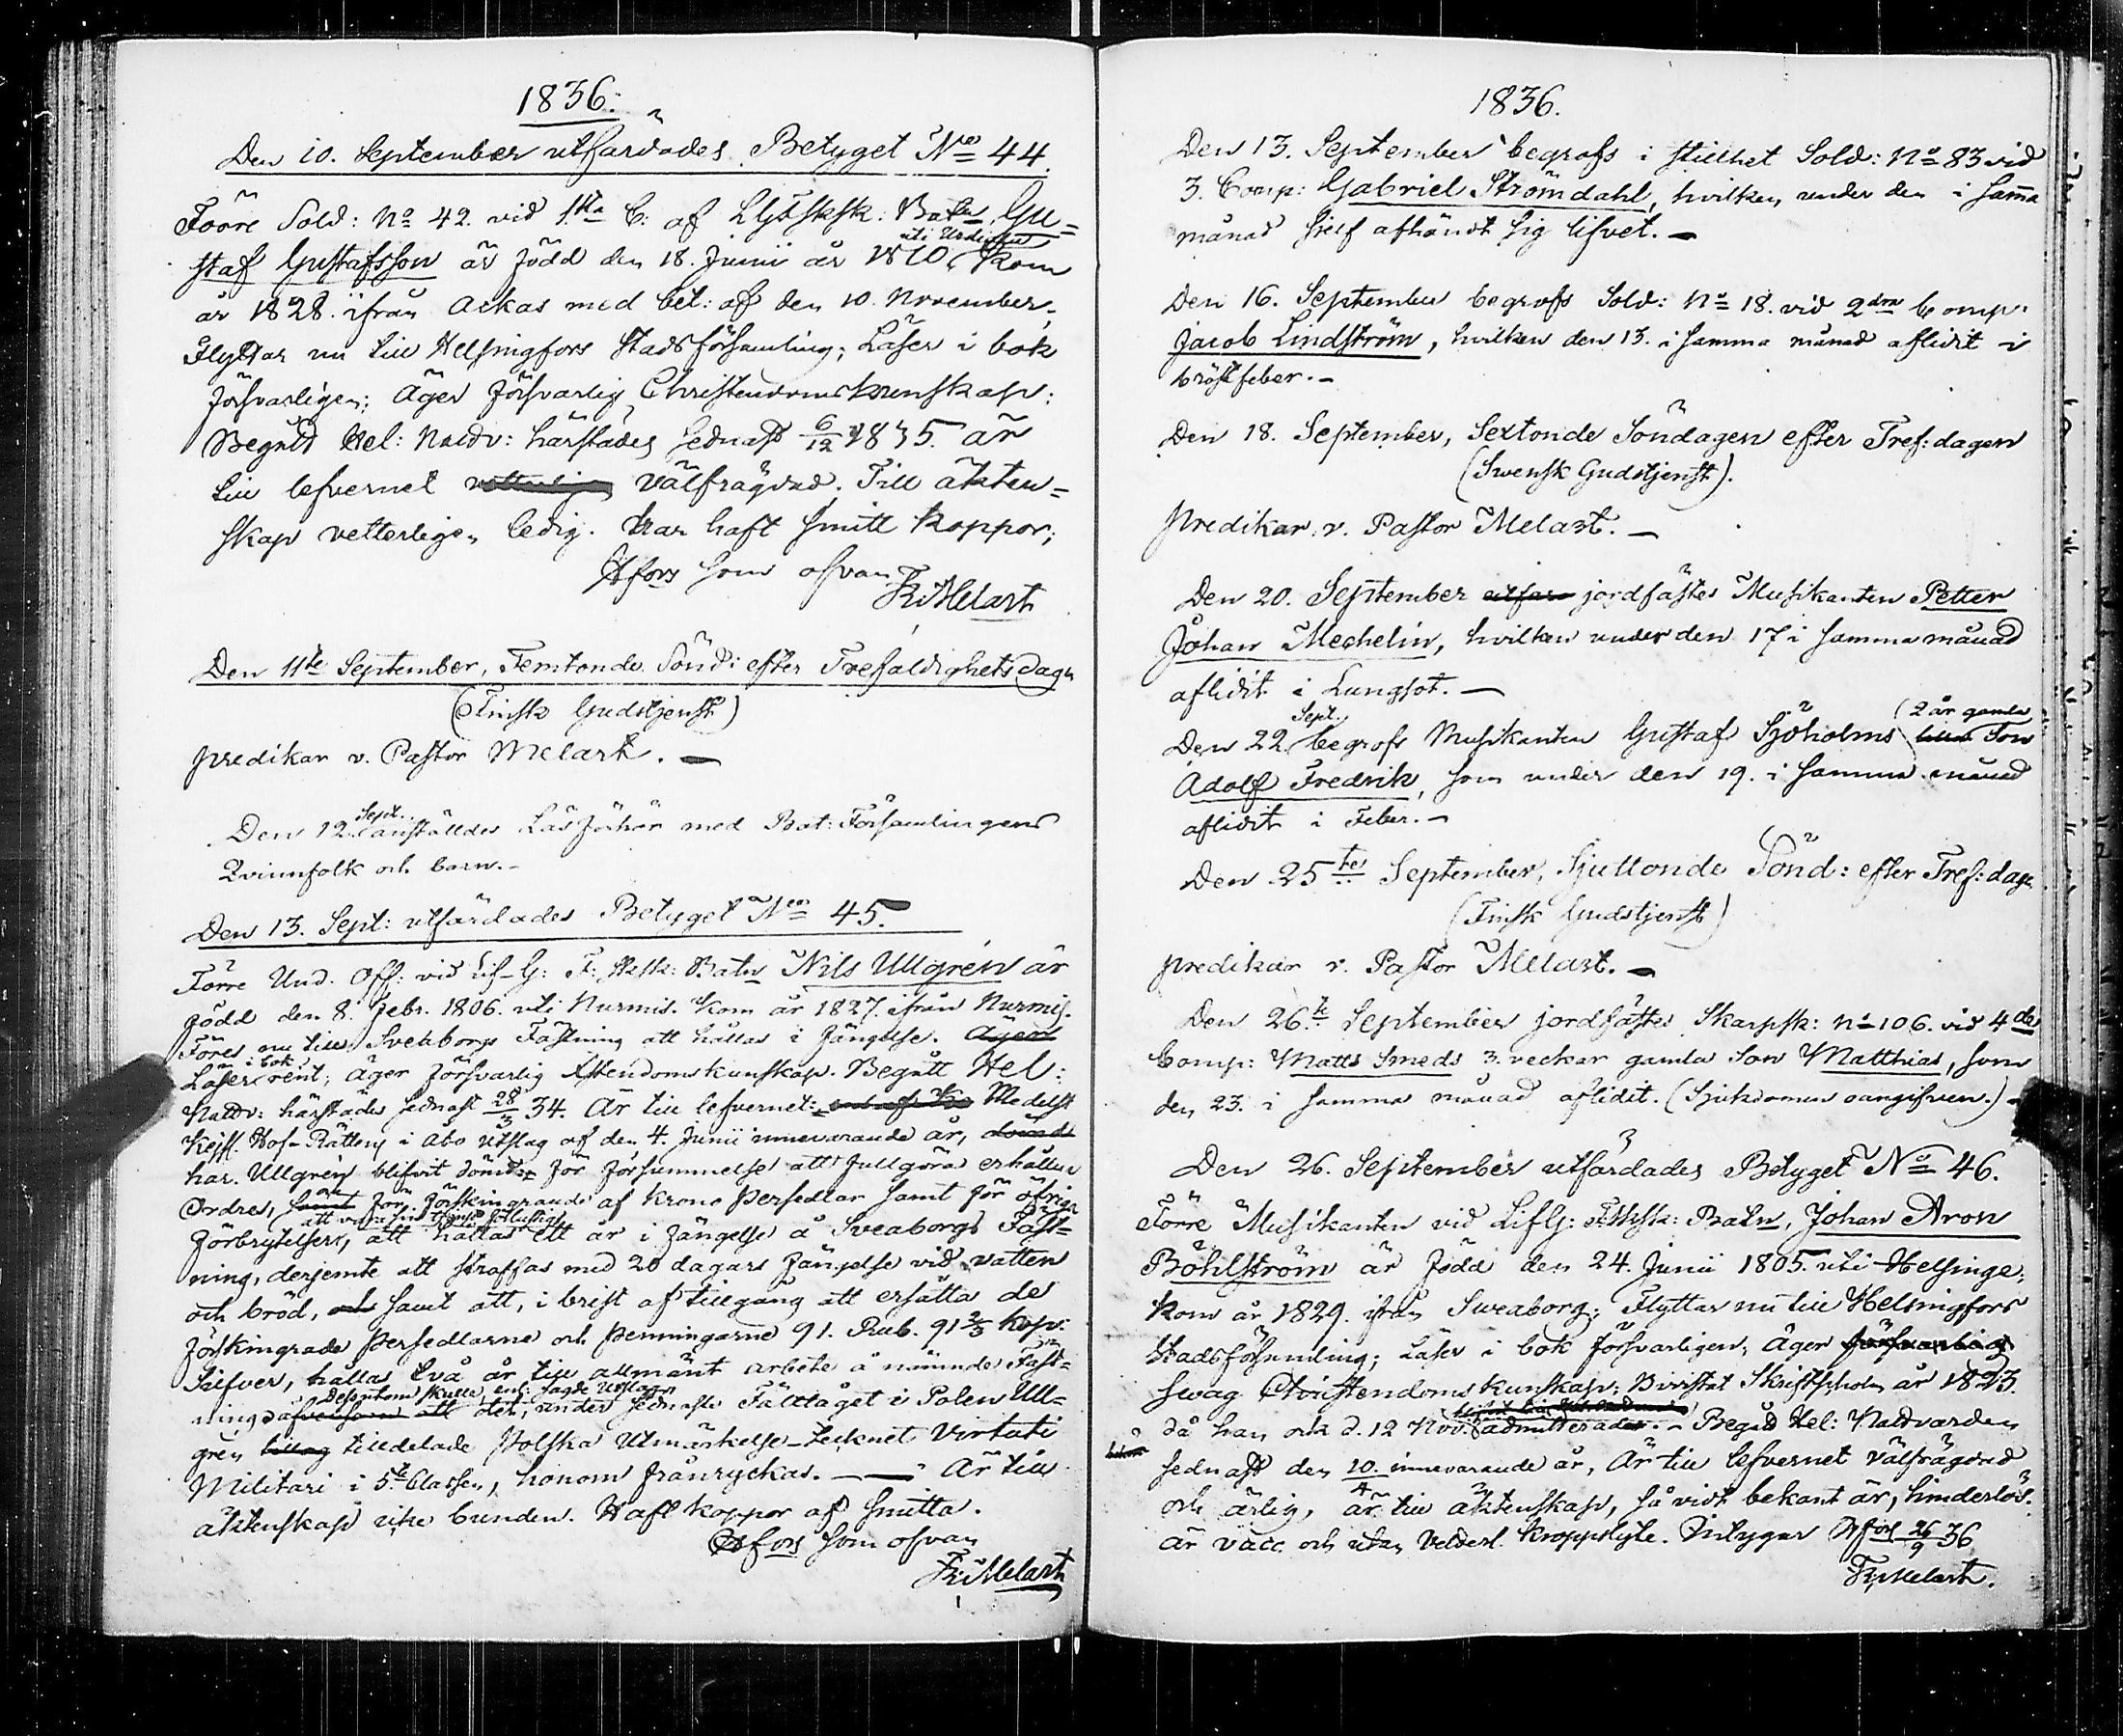 1836.
Den 10. September utfärdades Betyget No 44.
Förre Sold: No 42. vid 1sta C: af LGFSksk: Batn Gu=
uti Urdiala
staf Gustafsson är född den 18. Junii år 1810, kom
år 1828. ifrån Ackas med bet: af den 10. November;
Flyttar nu till Helsingfors Stadsförsamling; Läser i bok
försvarligen; Äger försvarlig Christendomskunskap;
Begått Hel: Nattv: härstädes sednast 6/12 1835. är
till lefvernet välfrägdad. Till äkten=
skap vetterligen ledig. Har haft smitt koppor;
Hfors som ofvan
FR Melart
Den 11te September, Femtonde Sönd: efter Trefaldighets dagn
(Finsk Gudstjenst)
predikar v. Pastor Melart. —
Sept.
Den 12. anställdes Läsförhör med Bat: Församlingens
Qvinnfolk och barn. -
Den 13. Sept: utfärdades Betyget No 45.
Förre Und. Off: vid Lif-G: F: Sksk: Batn Nils Ullgrén är
född den 8. Febr. 1806. uti Nurmis. Kom år 1827. ifrån Nurmis.
Föres nu till Sveaborgs Fästning att hållas i fängelse. Äger
i bok
Läser rent; äger försvarlig Xstendomskunskap. Begått Hel:
Nattv: härstädes sednast 28/3 34. Är till lefvernet: Medelst
Kejsl. Hof-Rättens i Åbo utslag af den 4. Junii innevarande år, dömd
har Ullgrén blifvit dömd för försummelse att fullgöra erhållne
Ordres, samt för förskingrande af Krono persedlar samt för öfriga
att vara sin tjenst förlustig
förbrytelser, att hållas ett år i fängelse å Sveaborgs Fäst=
ning, derjemte att straffas med 20 dagars fängelse vid vatten
och bröd, och samt att, i brist af tillgång att ersätta de
förskingrade persedlarne och penningarne 91. Rub. 91 2/3 kop:
Silfver, hållas två år till allmänt arbete å nämnde Fäst=
Dessutom skulle enl: sagde Utslag
ning det, under sednaste Fälttåget i Polen Ull=
grén tilldelade Polska Utmärkelse-tecknet Virtuti
Militari i 5te Classen, honom frånryckas. — — Är till
äktenskap icke bunden. Haft koppor af smitta.
Hfors som ofvan
FR Melart
1836.
Den 13. September begrofs i stillhet Sold: No 83 vid
3. Comp: Gabriel Strömdahl, hvilken under den i samma
månad sielf afhändt sig lifvet. —
Den 16. September begrofs Sold: No 18. vid 2dra Comp.
Jacob Lindström, hvilken den 13. i samma månad aflidit i
bröstfeber. -
Den 18. September, Sextonde Söndagen efter Tref: dagen
(Swensk Gudstjenst).
predikar v. Pastor Melart. —
Den 20. September utfär jordfästes Musikanten Petter
Johan Mechelin, hvilken under den 17 i samma månad
aflidit i Lungsot. —
Sept. 2 år gamla
Den 22. begrofs Musikanten Gustaf Sjöholms lilla Son
Adolf Fredrik, som under den 19. i samma månad
aflidit i Feber. -
Den 25te September, Sjuttonde Sönd: efter Tref: dagn
(Finsk Gudstjenst)
predikar v. Pastor Melart. —
Den 26te September jordfästes Skarpsk: No 106. vid 4de
Comp: Matts Smeds 3. veckar gamla Son Matthias, som
den 23. i samma månad aflidit. (Sjukdomen oangifven.) -
Den 26. September utfärdades Betyget No 46.
Förre Musikanten vid LifG: FSksk: Batn, Johan Aron
Böhlström är född den 24. Junii 1805. uti Helsinge;
kom år 1829. ifrån Sweaborg; Flyttar nu till Helsingfors
Stadsförsamling; Läser i bok försvarligen; äger försvarlig
swag Christendomskunskap; Bivistat Skriftscholan år 1823.
då han och d. 12 Nov. admitterades. - Begått Hel: Nattvarden
sednast den 10/4 innevarande år, Är till lefvernet välfrägdad
och ärlig, är till äktenskap, så vidt bekant är, hinderlös.
är vacc. och utan vederl. kroppslyte. Intygar Hfors 26/9 36
FR Melart.